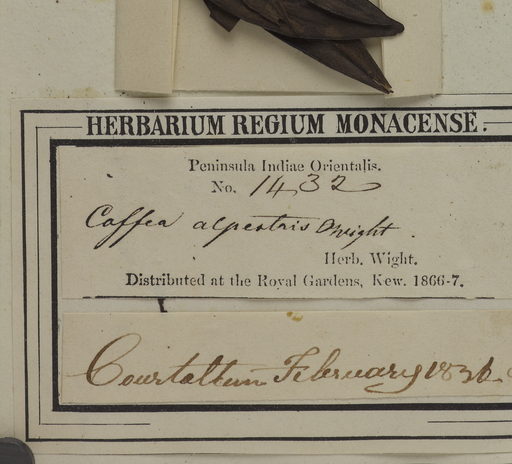 HERBARIUM REGIUM MONACENSE.
Peninsula Indiae Orientalis.
No. 1432
Coffea alpestris Wight.
Herb. Wight.
Distributed at the Royal Gardens, Kew. 1866-7.
Courtallum February 1836